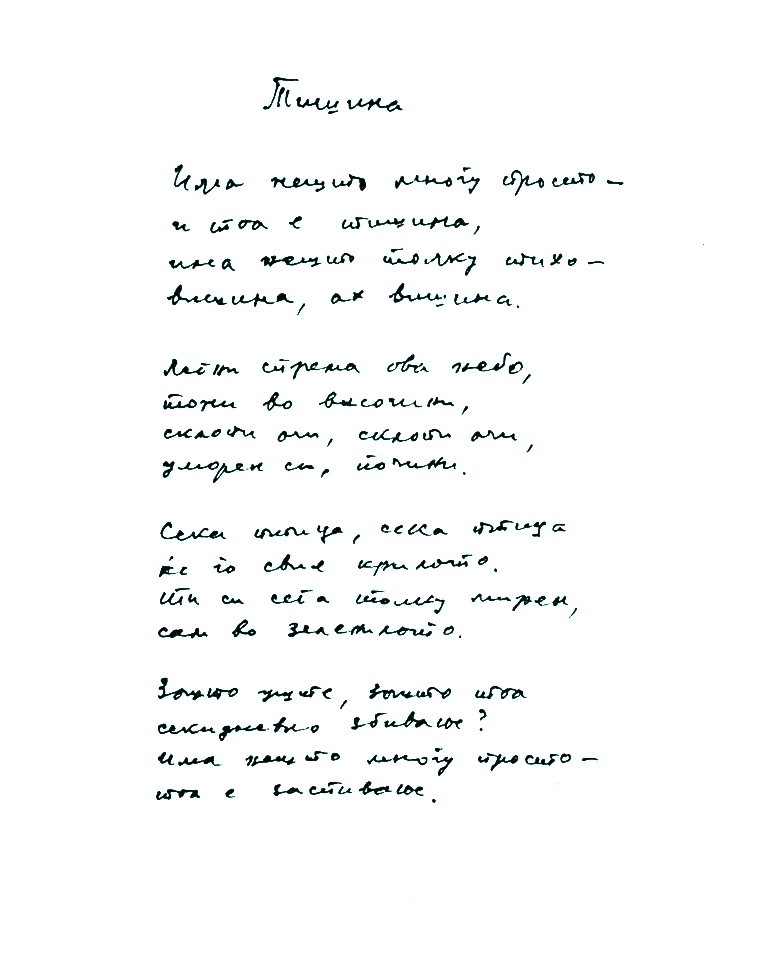 Тишина
Има нешто многу просто –
и тоа е тишина,
има нешто толку тихо –
височина, ах вишина.
Легни спрема ова небо,
тони во височини,
склопи очи, склопи очи,
уморен си, почини.
Секоја птица, сека птица
ќе го свие крилото.
Ти си сега толку мирен,
сам во зеленилото.
Зошто уште, зошто тоа
секидневно збивање?
Има нешто многу просто –
тоа е застивање.